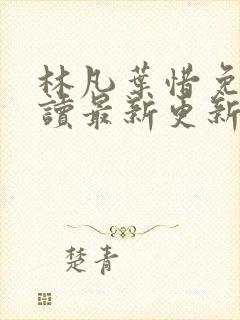 林凡葉惜免
讀最新更新
楚青